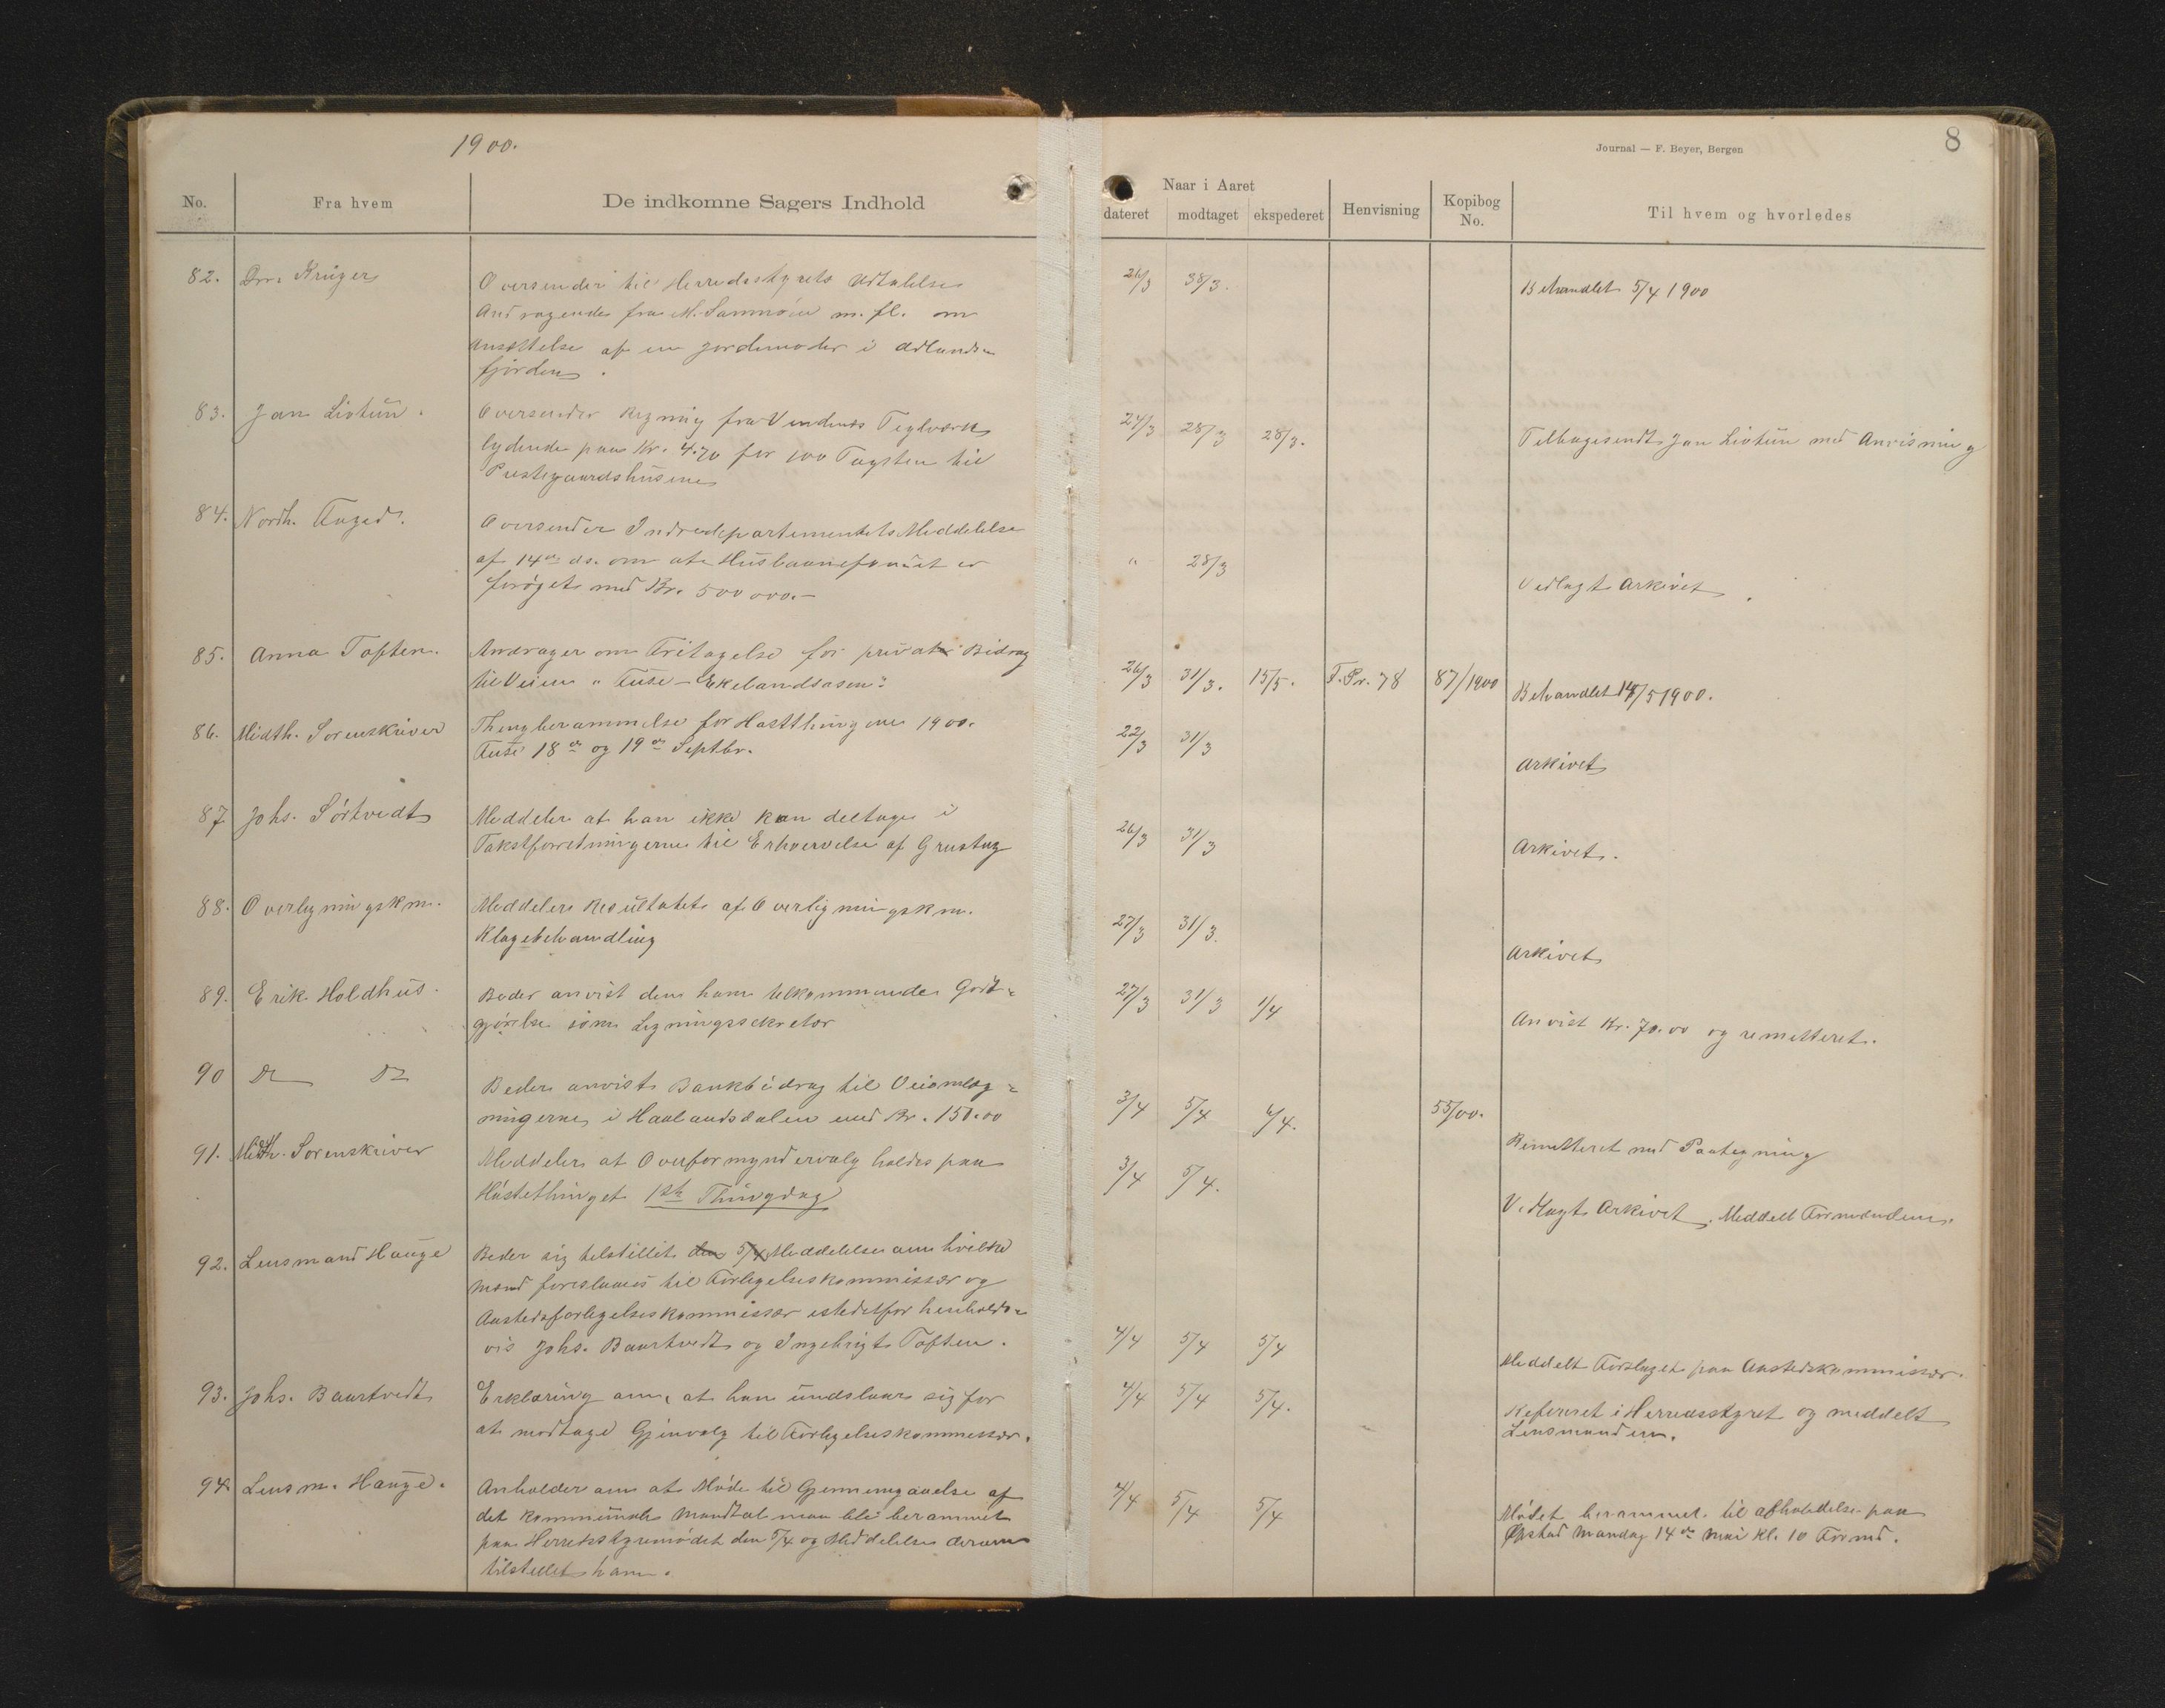 1900.
Journal — F. Beyer, Bergen
8
No.
Fra hvem
De indkomne Sagers Indhold
Naar i Aaret
dateret
modtaget
ekspederet
Henvisning
Kopibog
No.
Til hvem og hvorledes
82. Krüger Oversender til Herredsstyrets Udtalelse 26/3 38/3. Behandlet 5/4 1900
Andragende fra M. Samnöen m. fl. om
Ansættelse af en Jordemoder i Adlands-
fjorden.
83. Jan Livtün. Oversender Regning fra Vindenes Teglværk 24/3 28/3 28/3. Tilbagesendt Jan Livtün med Anvisning
lydende paa Kr. 4.70 for 100 Tagsten til
Præstegaardshüsene
84. Nordh. Foged. Oversender Indredepartementets Meddelelse " 28/3 Vedlagt Arkivet.
af 14de ds. om at Hüsbaanefondet er
forøget med Kr. 500 000.-
85. Anna Toften. Andrager om Fritagelse for privat Bidrag 26/3 31/3. 15/5. F.Pr. 78 87/1900 Behandlet 14/5 1900.
til Veien "Füse - Ekelandsosen".
86. Midth. Sorenskriver Thingberammelse for Høstthingene 1900. 22/3 31/3 Arkivet
Füse 18de og 19de Septbr.
87. Johs. Sörtvedt Meddeler at han ikke kan deltage i 26/3 31/3 Arkivet.
Takstforretningerne til Erhvervelse af Grustag
88. Overligningskm. Meddeler Resultatet af Overligningskm. 27/3 31/3. Arkivet
Klagebehandling
89. Erik Holdhüs. Beder anvist den ham tilkommende Godt- 27/3 31/3 1/4 Anvist Kr. 70.00 og remitteret.
gjørelse som Ligningssekretær
90 Do Do Beder anvist Bankbidrag til Veiomlæg- 3/4 5/4 6/4. 55/00. Remitteret med Paategning
ningerne i Haalandsdalen med Kr. 150.00
91. Midth. Sorenskriver Meddeler at Overformyndervalg holdes paa 3/4 5/4. Vedlagt Arkivet. Meddelt Formanden.
Høstethinget 1ste Thingdag
92. Lensmand Hauge Beder sig tilstillet den 5/4 Meddelelse om hvilke
Mænd foreslaaes til Forligelseskommissær og
Aastedsforligelseskommissær istedetfor henholds-
vis Johs. Baartvedt og Ingebrigt Toften. 4/4 5/4 5/4 Meddelt Forslaget paa Aastedskommissær.
93. Johs. Baartvedt Erklæring om, at han ündslaar sig for 4/4 5/4 5/4. Refereret i Herredsstyret og meddelt
at modtage Gjenvalg til Forligelseskommissær. Lensmanden.
94. Lensm. Hauge. Anholder om at Møde til Gjennemgaaelse af 4/4 5/4 5/4 Mødet berammet til afholdelse paa
det kommünale Mandtal maa bli berammet Øpstad Mandag 14de Mai kl. 10 Formd.
paa Herredsstyremødet den 5/4 og Meddelelse derom
tilstillet ham.